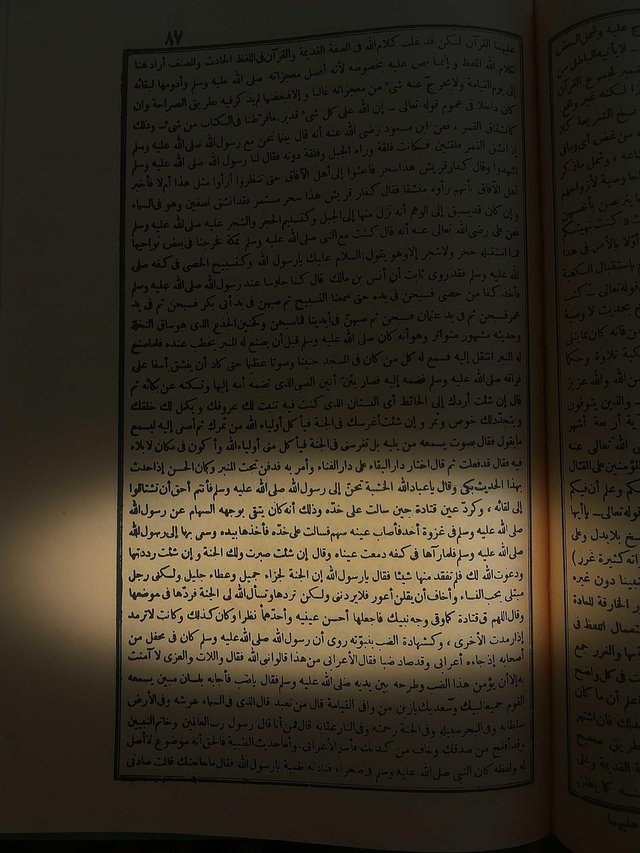 ٨٧
عليهما القرآن لكن قد غلب كلام الله في الصفة القديمة والقرآن في اللفظ الحادث والمصنف أراد هنا
بكلام الله اللفظ وإنما نص عليه بخصوصه لأنه أفضل معجزاته صلى الله عليه وسلم وأدومها لبقائه
إلى يوم القيامة ولا يخرج عنه شئ من معجزاته غالبا
كان داخلا في عموم قوله تعالى ـ إن الله على كل شئ قدير. ما فرطنا في الكتاب من شئ ـ وذلك
كانشقاق القمر، فعن ابن مسعود رضي الله عنه أنه قال بينما نحن مع رسول الله صلى الله عليه وسلم
إذ انشق القمر فلقتين فكانت فلقة وراء الجبل وفلقة دونه فقال لنا رسول الله صلى الله عليه وسلم
اشهدوا وقال كفار قريش هذا سحر فابعثوا إلى أهل الآفاق حتى تنظروا أرأوا مثل هذا أم لا فأخبر
أهل الآفاق بأنهم رأوه منشقا فقال كفار قريش هذا سحر مستمر فقد انشق نصفين وهو في السماء
وإن كان قد يسبق إلى الوهم أنه نزل منها إلى الجبل وكتسليم الحجر والشجر عليه صلى الله عليه وسلم
فعن على رضي الله تعالى عنه أنه قال كنت مع النبي صلى الله عليه وسلم بمكة فخرجنا في بعض نواحيها
فما استقبله حجر ولا شجر إلا وهو يقول: السلام عليك يا رسول الله وكتسبيح الحصى في كفه صلى
الله عليه وسلم فقد روى ثابت أن أنس بن مالك قال كنا جلوسا عند رسول الله صلى الله عليه وسلم
فأخذ كفا من حصى فسبحن في يده حتى سمعنا التسبيح ثم صبهن في يد أبى بكر فسبحن ثم في يد
عمر فسبحن ثم في يد عثمان فسبحن ثم صبهن في أيدينا فما سبحن وكحنين الجذع الذى هو ساق النخلة
وحديثه مشهور متواتر وهو أنه كان صلى الله عليه وسلم قبل أن يصنع له المنبر يخطب عنده فلما صنع
له المنبر انتقل إليه فسمع له كل من كان في المسجد حنينا وصوتا عظيما حتى كاد أن ينشق أسفا على
فراقه صلى الله عليه وسلم فضمه إليه فصار يئن أنين الصبي الذى تضمه أمه إليها وتسكته عن بكائه ثم
قال إن شئت أردك إلى الحائط أى البستان الذى كنت فيه تنبت لك عروقك ويكمل لك خلقك
ويتجدد لك خوص وثمر وإن شئت أغرسك في الجنة فيأكل أولياء الله من ثمرك ثم أصغى إليه ليسمع
ما يقول فقال بصوت يسمعه من يليه بل تغرسنى في الجنة فيأكل منى أولياء الله وأكون في مكان لا بلاء
فيه فقال قد فعلت ثم قال اختار دار البقاء على دار الفناء وأمر به فدفن تحت المنبر وكان الحسن إذا حدث
بهذا الحديث بكى وقال يا عباد الله الخشبة تحن إلى رسول الله صلى الله عليه وسلم فأنتم أحق أن تشتاقوا
إلى لقائه، وكرد عين قتادة حين سالت على خده وذلك أنه كان يتقى بوجهه السهام عن رسول الله
صلى الله عليه وسلم في غزوة أحد فأصاب عينه سهم فسالت على خده فأخذها بيده وسعى بها إلى رسول الله
صلى الله عليه وسلم فلما رآها في كفه دمعت عيناه وقال إن شئت صبرت ولك الجنة وإن شئت رددتها
ودعوت الله لك فلم تفقد منها شيئا فقال يا رسول الله إن الجنة لجزاء جميل وعطاء جليل ولكنى رجل
مبتلى بحب النساء وأخاف أن يقلن أعور فلا يردننى ولكن تردها وتسأل الله لى الجنة فردها في موضعها
وقال اللهم ق قتادة كما وقى وجه نبيك فاجعلها أحسن عينيه وأحدهما نظرا وكان كذلك وكانت لا ترمد
إذا رمدت الأخرى، وكشهادة الضب بنبوّته روى أن رسول الله صلى الله عليه وسلم كان في محفل من
أصحابه إذ جاءه أعرابى وقد صاد ضبا فقال الأعرابى من هذا قالوا نبى الله فقال واللات والعزى لا آمنت
به إلا أن يؤمن هذا الضب وطرحه بين يديه صلى الله عليه وسلم فقال يا ضب فأجابه بلسان مبين يسمعه
القوم جميعه لبيك وسعديك يا زين من وافى القيامة قال من تعبد قال الذى في السماء عرشه وفي الأرض
سلطانه وفي البحر سبيله وفي الجنة رحمته وفي النار عقابه قال فمن أنا قال رسول رب العالمين وخاتم النبيين
وقد أفلح من صدقك وخاب من كذبك فأسلم الأعرابى. وأما حديث الظبية فالحق أنه موضوع لا أصل
له ولفظه كان النبي صلى الله عليه وسلم في صحراء فنادته ظبية يا رسول الله فقال ما حاجتك قالت صادنى